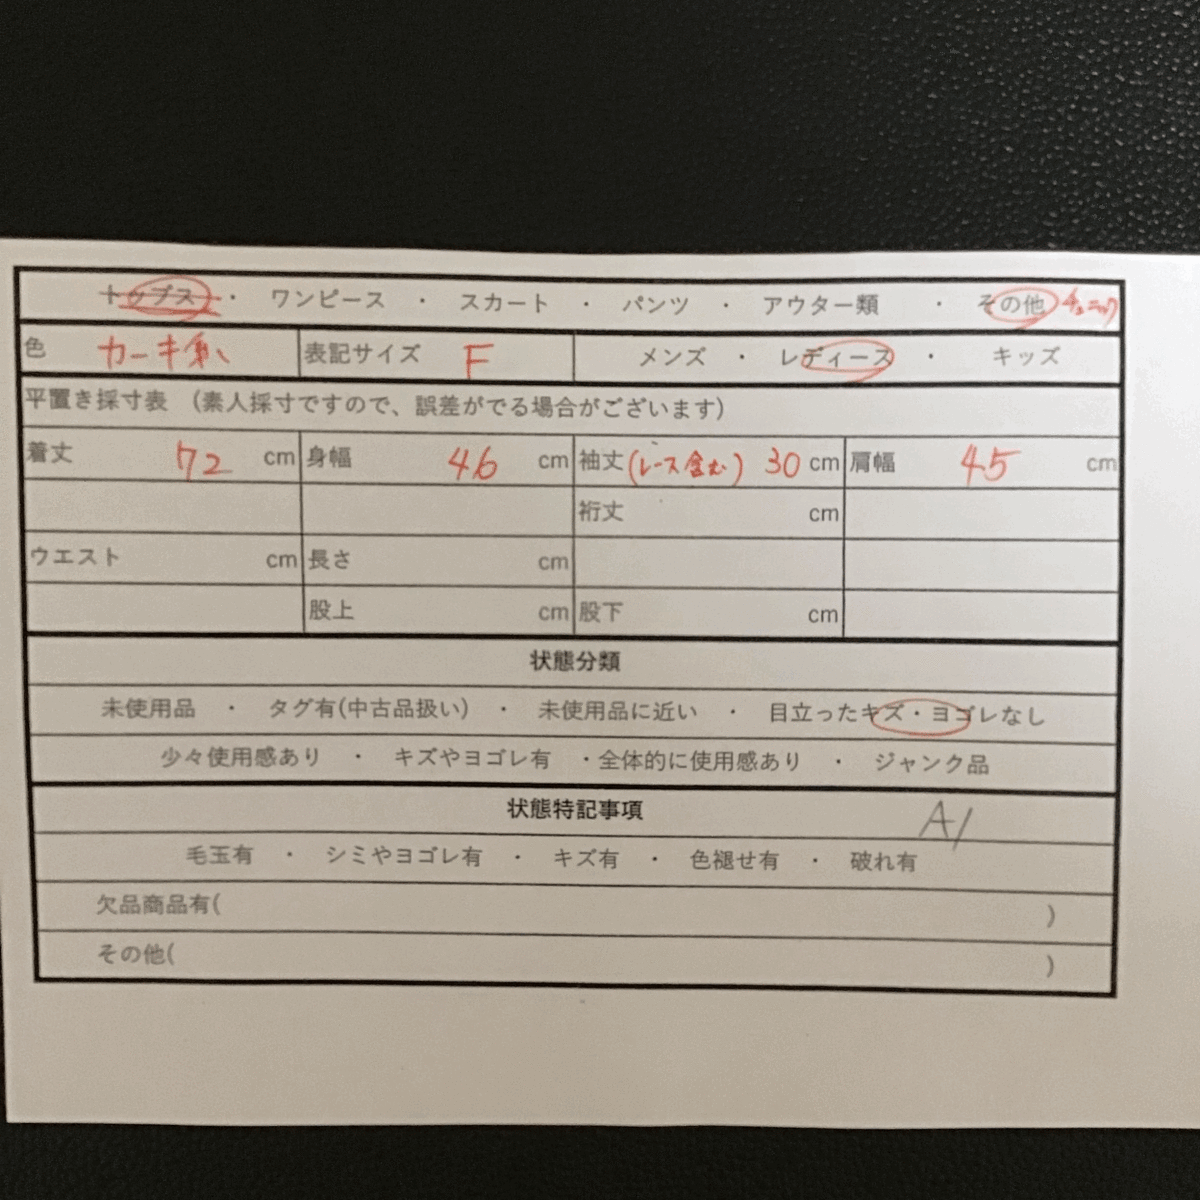 トップス ・ ワンピース ・ スカート ・ パンツ ・ アウター類 ・ その他 チュニック
色 カーキ系 表記サイズ F メンズ ・ レディース ・ キッズ
平置き採寸表 (素人採寸ですので、誤差がでる場合がございます)
着丈 72 cm 身幅 46 cm 袖丈 (レース含む) 30 cm 肩幅 45 cm
裄丈 cm
ウエスト cm 長さ cm
股上 cm 股下 cm
状態分類
未使用品 ・ タグ有(中古品扱い) ・ 未使用品に近い ・ 目立ったキズ・ヨゴレなし
少々使用感あり ・ キズやヨゴレ有 ・全体的に使用感あり ・ ジャンク品
状態特記事項 A1
毛玉有 ・ シミやヨゴレ有 ・ キズ有 ・ 色褪せ有 ・ 破れ有
欠品商品有( )
その他( )